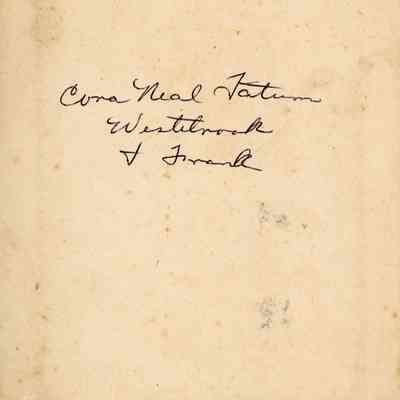 Cora Neal Tatum
Westbrook
& Frank